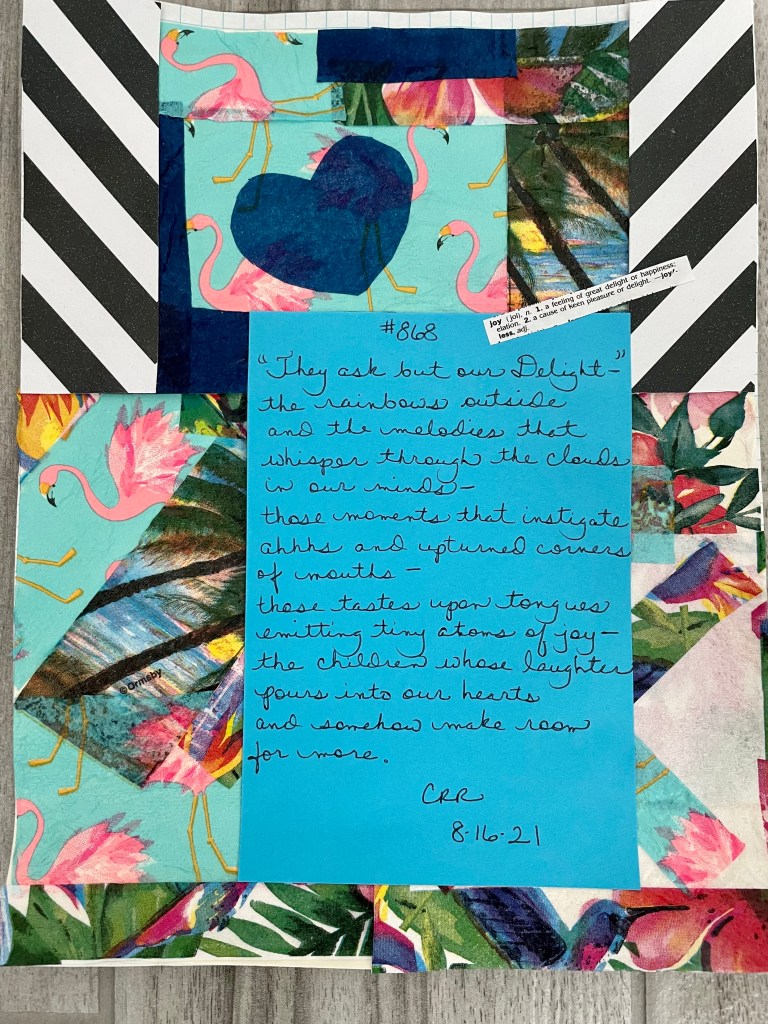 joy (joi), n. 1. a feeling of great delight or happiness;
elation. 2. a cause of keen pleasure or delight. —joy′-
less, adj.
#868
"They ask but our Delight—"
the rainbows outside
and the melodies that
whisper through the clouds
in our minds—
those moments that instigate
ahhhs and upturned corners
of mouths—
those tastes upon tongues
emitting tiny atoms of joy—
the children whose laughter
pours into our hearts
and somehow make room
for more.
CRR
8-16-21
©Ormsby